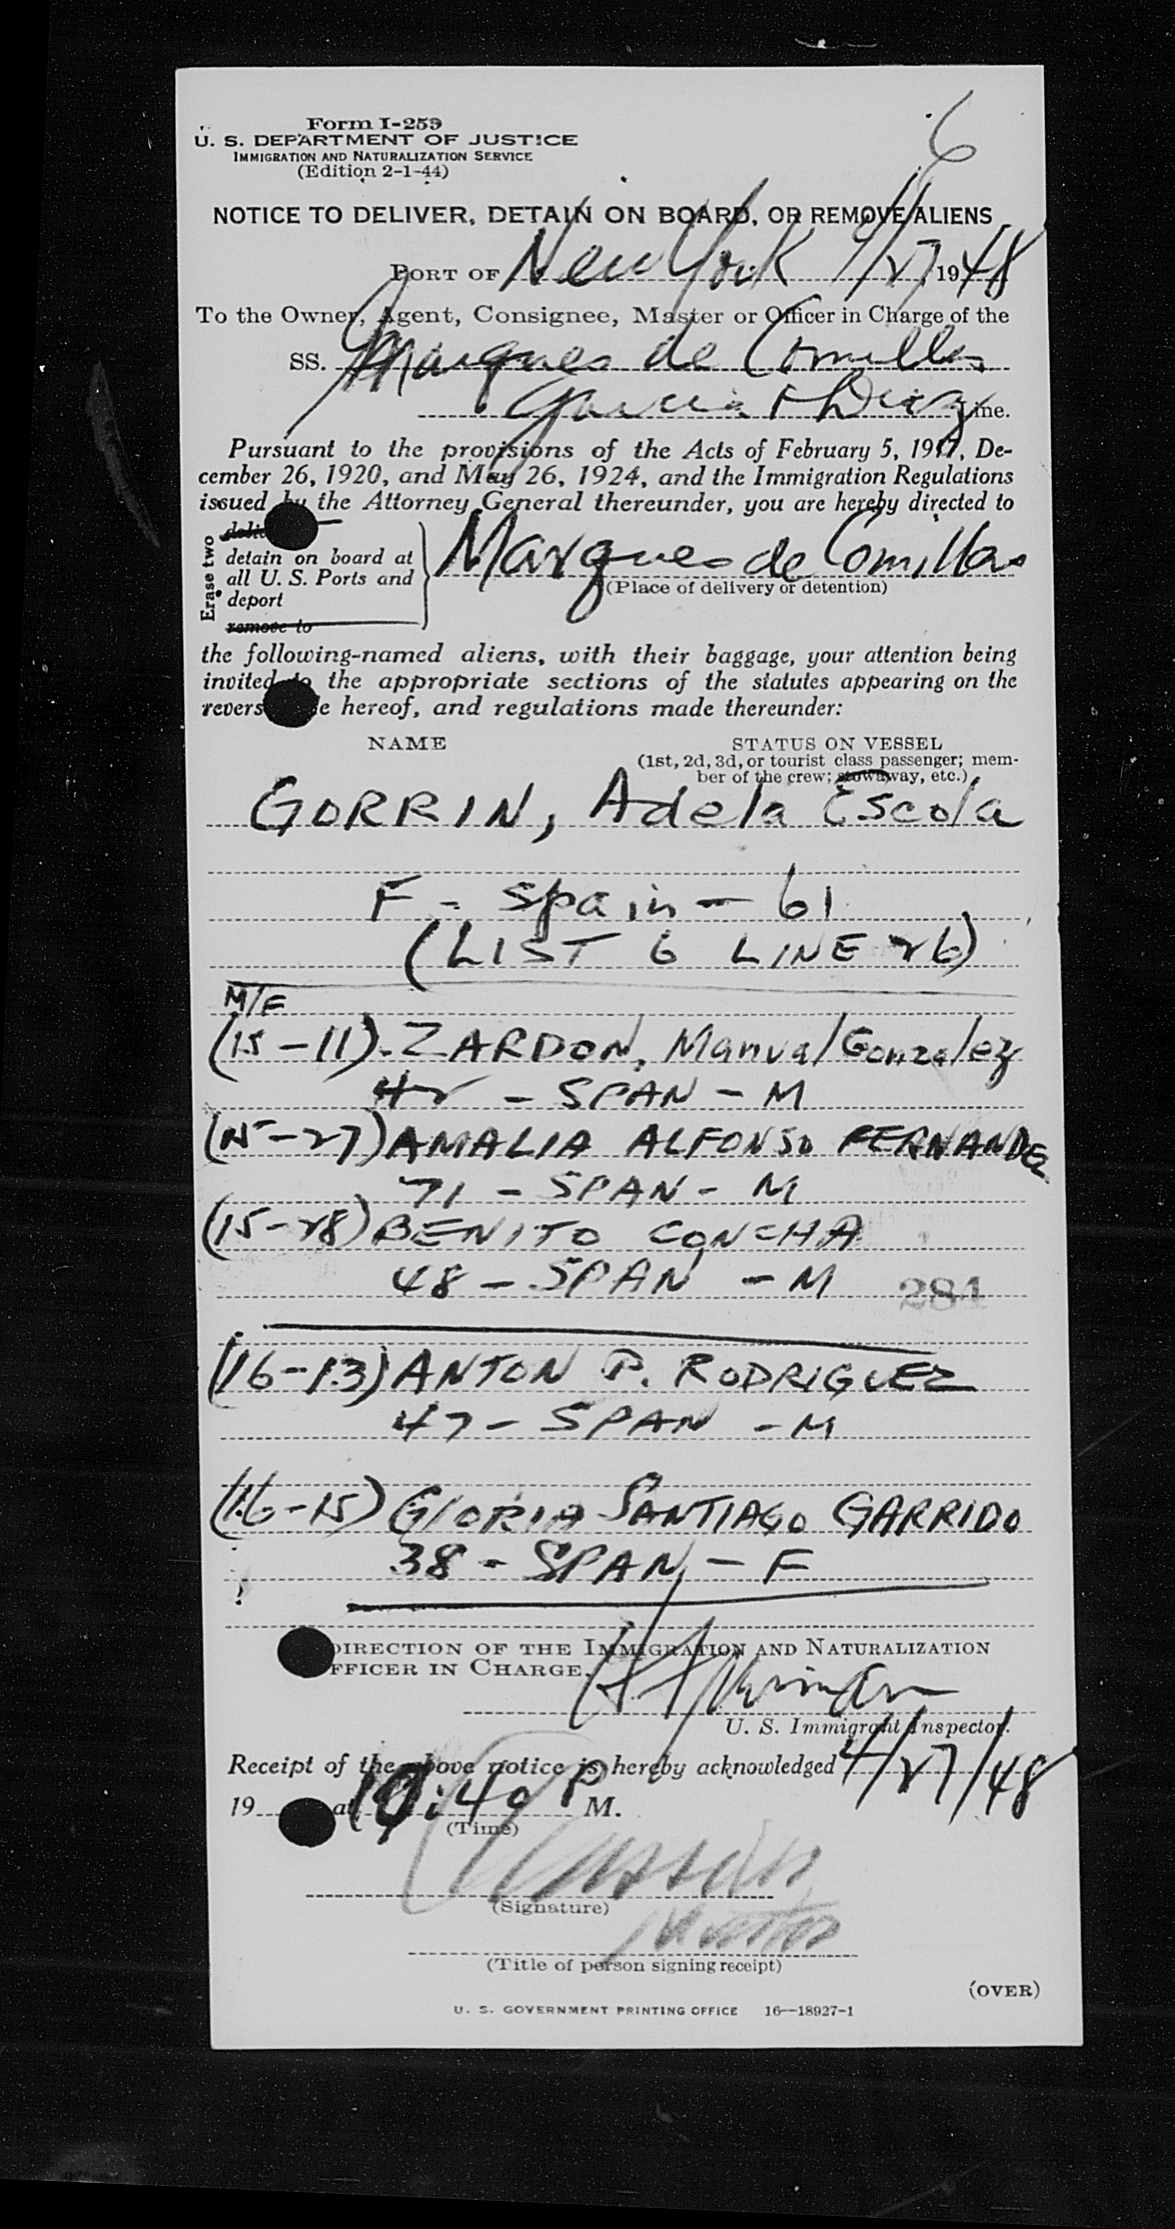 6
Form I-259
U. S. DEPARTMENT OF JUSTICE
IMMIGRATION AND NATURALIZATION SERVICE
(Edition 2-1-44)
NOTICE TO DELIVER, DETAIN ON BOARD, OR REMOVE ALIENS
PORT OF New York 4/27 1948
To the Owner, Agent, Consignee, Master or Officer in Charge of the
SS. Marques de Comillas
Garcia & Diaz Line.
Pursuant to the provisions of the Acts of February 5, 1917, De-
cember 26, 1920, and May 26, 1924, and the Immigration Regulations
issued by the Attorney General thereunder, you are hereby directed to
Erase two
detain on board at
all U. S. Ports and
deport
remove to
Marques de Comillas
(Place of delivery or detention)
the following-named aliens, with their baggage, your attention being
invited to the appropriate sections of the statutes appearing on the
revers e hereof, and regulations made thereunder:
NAME STATUS ON VESSEL
(1st, 2d, 3d, or tourist class passenger; mem-
ber of the crew; stowaway, etc.)
GORRIN, Adela Escola
F - Spain - 61
(LIST 6 LINE 26)
M/F
(15-11)-ZARDON, Manual Gonzalez
42 - SPAN - M
(15-27) AMALIA ALFONSO FERNANDEZ
71 - SPAN - M
(15-28) BENITO CONCHA
48 - SPAN - M
284
(16-13) ANTON P. RODRIGUEZ
47 - SPAN - M
(16-15) GLORIA SANTIAGO GARRIDO
38 - SPAN - F
DIRECTION OF THE IMMIGRATION AND NATURALIZATION
FFICER IN CHARGE.
U. S. Immigrant Inspector.
Receipt of the above notice is hereby acknowledged 4/27/48
19 at 10:40 P M.
(Time)
(Signature)
Master
(Title of person signing receipt)
(OVER)
U. S. GOVERNMENT PRINTING OFFICE 16—18927-1